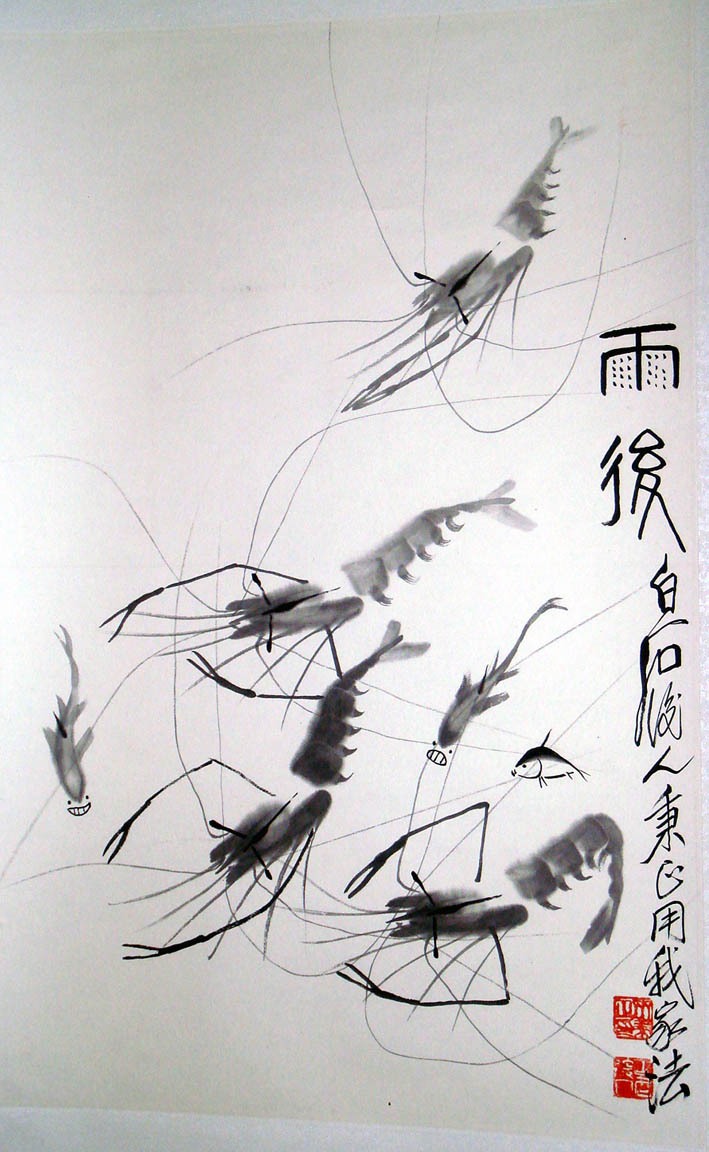 雨後
白石後人秉正用我家法